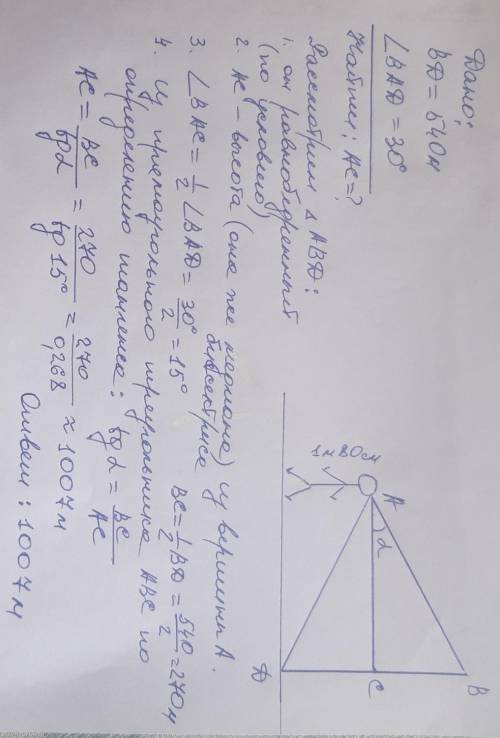 Дано:
BD = 540м
∠BAD = 30°
Найти: AC=?
Рассмотрим △ABD:
1. он равнобедренный
(по условию)
2. AC – высота (она же медиана) из вершины A.
биссектриса
3. ∠BAC = 1/2 ∠BAD = 30°/2 = 15° BC = 1/2 BD = 540/2 = 270м
4. Из прямоугольного треугольника ABC по
определению тангенса: tg α = BC/AC
AC = BC/tg α = 270/tg 15° = 270/0,268 ≈ 1007м
Ответ: 1007м
1м80см
A
α
B
C
D